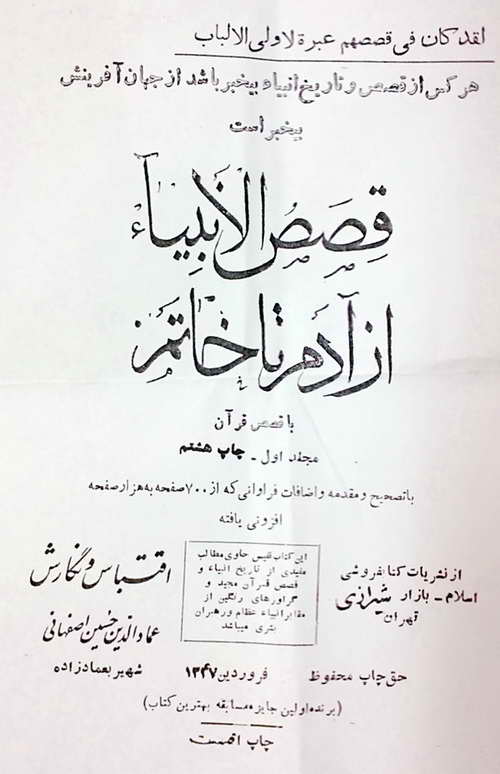 لقد کان فی قصصهم عبرة لاولی الالباب
هر کس از قصص و تاریخ انبیاء بیخبر باشد از جهان آفرینش
بیخبر است
قصص الانبیاء
از آدم تا خاتم
با قصص قرآن
مجلد اول - چاپ هشتم
با تصحیح و مقدمه و اضافات فراوانی که از ۷۰۰ صفحه به هزار صفحه
افزونی یافته
از نشریات کتابفروشی
اسلام - بازار شیرازی
تهران
این کتاب نفیس حاوی مطالب
مفیدی از تاریخ انبیاء و
قصص قرآن مجید و
گراورهای رنگین از
مقابر انبیاء عظام و رهبران
بشری میباشد
اقتباس و نگارش
عمادالدین حسین اصفهانی
شهیر بعمادزاده
حق چاپ محفوظ
فروردین ۱۳۴۷
(برنده اولین جایزه مسابقه بهترین کتاب)
چاپ افست